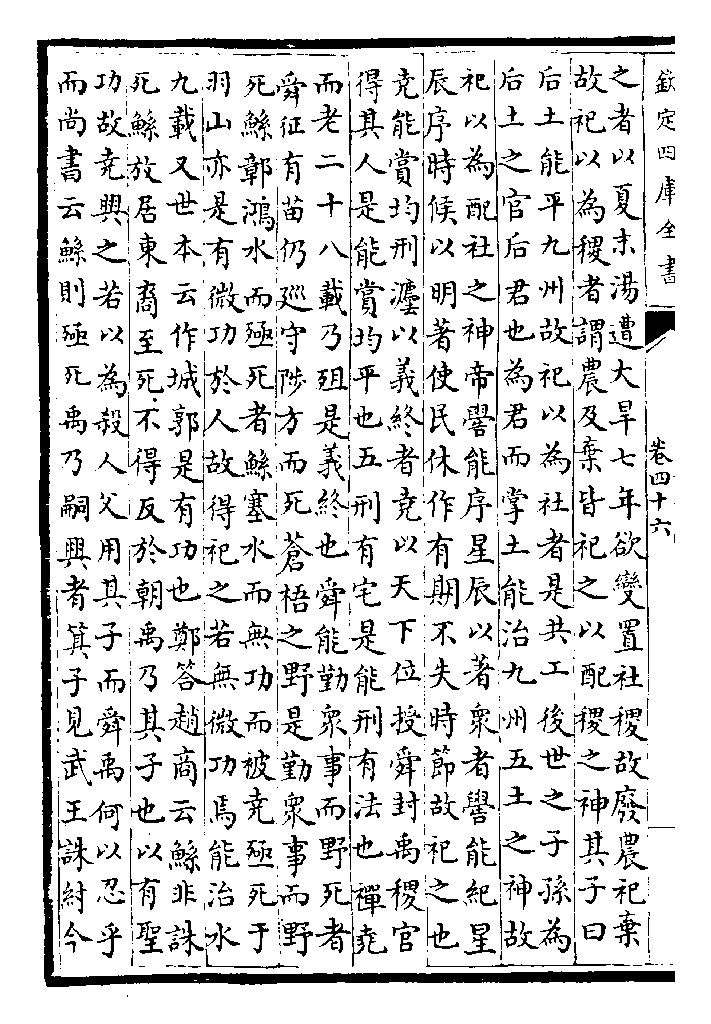 欽定四庫全書
卷四十六
之者以夏末湯遭大旱七年欲變置社稷故廢農祀棄
故祀以為稷者謂農及棄皆祀之以配稷之神其子曰
后土能平九州故祀以為社者是共工後世之子孫為
后土之官后君也為君而掌土能治九州五土之神故
祀以為配社之神帝嚳能序星辰以著衆者嚳能紀星
辰序時候以明著使民休作有期不失時節故祀之也
堯能賞均刑灋以義終者堯以天下位授舜封禹稷官
得其人是能賞均平也五刑有宅是能刑有法也禪堯
而老二十八載乃殂是義終也舜能勤衆事而野死者
舜征有苗仍廵守陟方而死蒼梧之野是勤衆事而野
死鯀鄣鴻水而殛死者鯀塞水而無功而被堯殛死于
羽山亦是有微功於人故得祀之若無微功焉能治水
九載又世本云作城郭是有功也鄭答趙商云鯀非誅
死鯀放居東裔至死不得反於朝禹乃其子也以有聖
功故堯興之若以為殺人父用其子而舜禹何以忍乎
而尚書云鯀則殛死禹乃嗣興者箕子見武王誅紂今